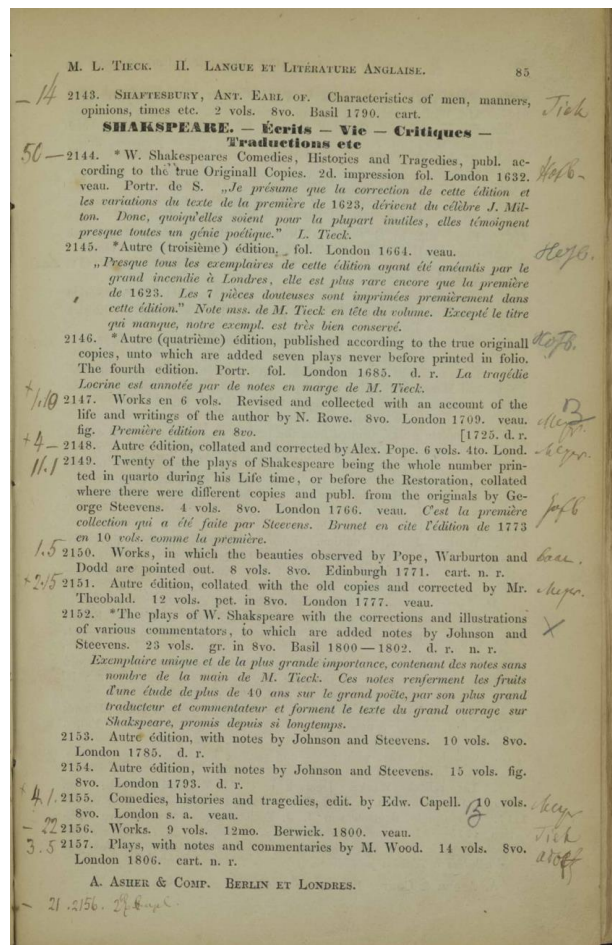 M. L. TIECK. II. LANGUE ET LITÉRATURE ANGLAISE. 85
— 14 2143. SHAFTESBURY, ANT. EARL OF. Characteristics of men, manners,
opinions, times etc. 2 vols. 8vo. Basil 1790. cart.
SHAKSPEARE. — Écrits — Vie — Critiques —
Traductions etc
50 — 2144. *W. Shakespeares Comedies, Histories and Tragedies, publ. ac-
cording to the true Originall Copies. 2d. impression fol. London 1632.
veau. Portr. de S. „Je présume que la correction de cette édition et
les variations du texte de la première de 1623, dérivent du célèbre J. Mil-
ton. Donc, quoiqu'elles soient pour la plupart inutiles, elles témoignent
presque toutes un génie poétique." L. Tieck.
2145. *Autre (troisième) édition, fol. London 1664. veau.
„Presque tous les exemplaires de cette édition ayant été anéantis par le
grand incendie à Londres, elle est plus rare encore que la première
de 1623. Les 7 pièces douteuses sont imprimées premièrement dans
cette édition." Note mss. de M. Tieck en tête du volume. Excepté le titre
qui manque, notre exempl. est très bien conservé.
2146. *Autre (quatrième) édition, published according to the true original
copies, unto which are added seven plays never before printed in folio.
The fourth edition. Portr. fol. London 1685. d. r. La tragédie
Locrine est annotée par de notes en marge de M. Tieck.
2147. Works en 6 vols. Revised and collected with an account of the
life and writings of the author by N. Rowe. 8vo. London 1709. veau.
fig. Première édition en 8vo. [1725. d. r.
+ 4 — 2148. Autre édition, collated and corrected by Alex. Pope. 6 vols. 4to. Lond.
2149. Twenty of the plays of Shakespeare being the whole number prin-
ted in quarto during his Life time, or before the Restoration, collated
where there were different copies and publ. from the originals by Ge-
orge Steevens. 4 vols. 8vo. London 1766. veau. C'est la première
collection qui a été faite par Steevens. Brunet en cite l'édition de 1773
en 10 vols. comme la première.
1.5 2150. Works, in which the beauties observed by Pope, Warburton and
Dodd are pointed out. 8 vols. 8vo. Edinburgh 1771. cart. n. r.
+2.15 2151. Autre édition, collated with the old copies and corrected by Mr.
Theobald. 12 vols. pet. in 8vo. London 1777. veau.
2152. *The plays of W. Shakspeare with the corrections and illustrations
of various commentators, to which are added notes by Johnson and
Steevens. 23 vols. gr. in 8vo. Basil 1800—1802. d. r. n. r.
Exemplaire unique et de la plus grande importance, contenant des notes sans
nombre de la main de M. Tieck. Ces notes renferment les fruits
d'une étude de plus de 40 ans sur le grand poëte, par son plus grand
traducteur et commentateur et forment le texte du grand ouvrage sur
Shakspeare, promis depuis si longtemps.
2153. Autre édition, with notes by Johnson and Steevens. 10 vols. 8vo.
London 1785. d. r.
2154. Autre édition, with notes by Johnson and Steevens. 15 vols. fig.
8vo. London 1793. d. r.
2155. Comedies, histories and tragedies, edit. by Edw. Capell. 10 vols.
8vo. London s. a. veau.
— 22 2156. Works. 9 vols. 12mo. Berwick. 1800. veau.
3.5 2157. Plays, with notes and commentaries by M. Wood. 14 vols. 8vo.
London 1806. cart. n. r.
A. ASHER & COMP. BERLIN ET LONDRES.
— 21 .2156.